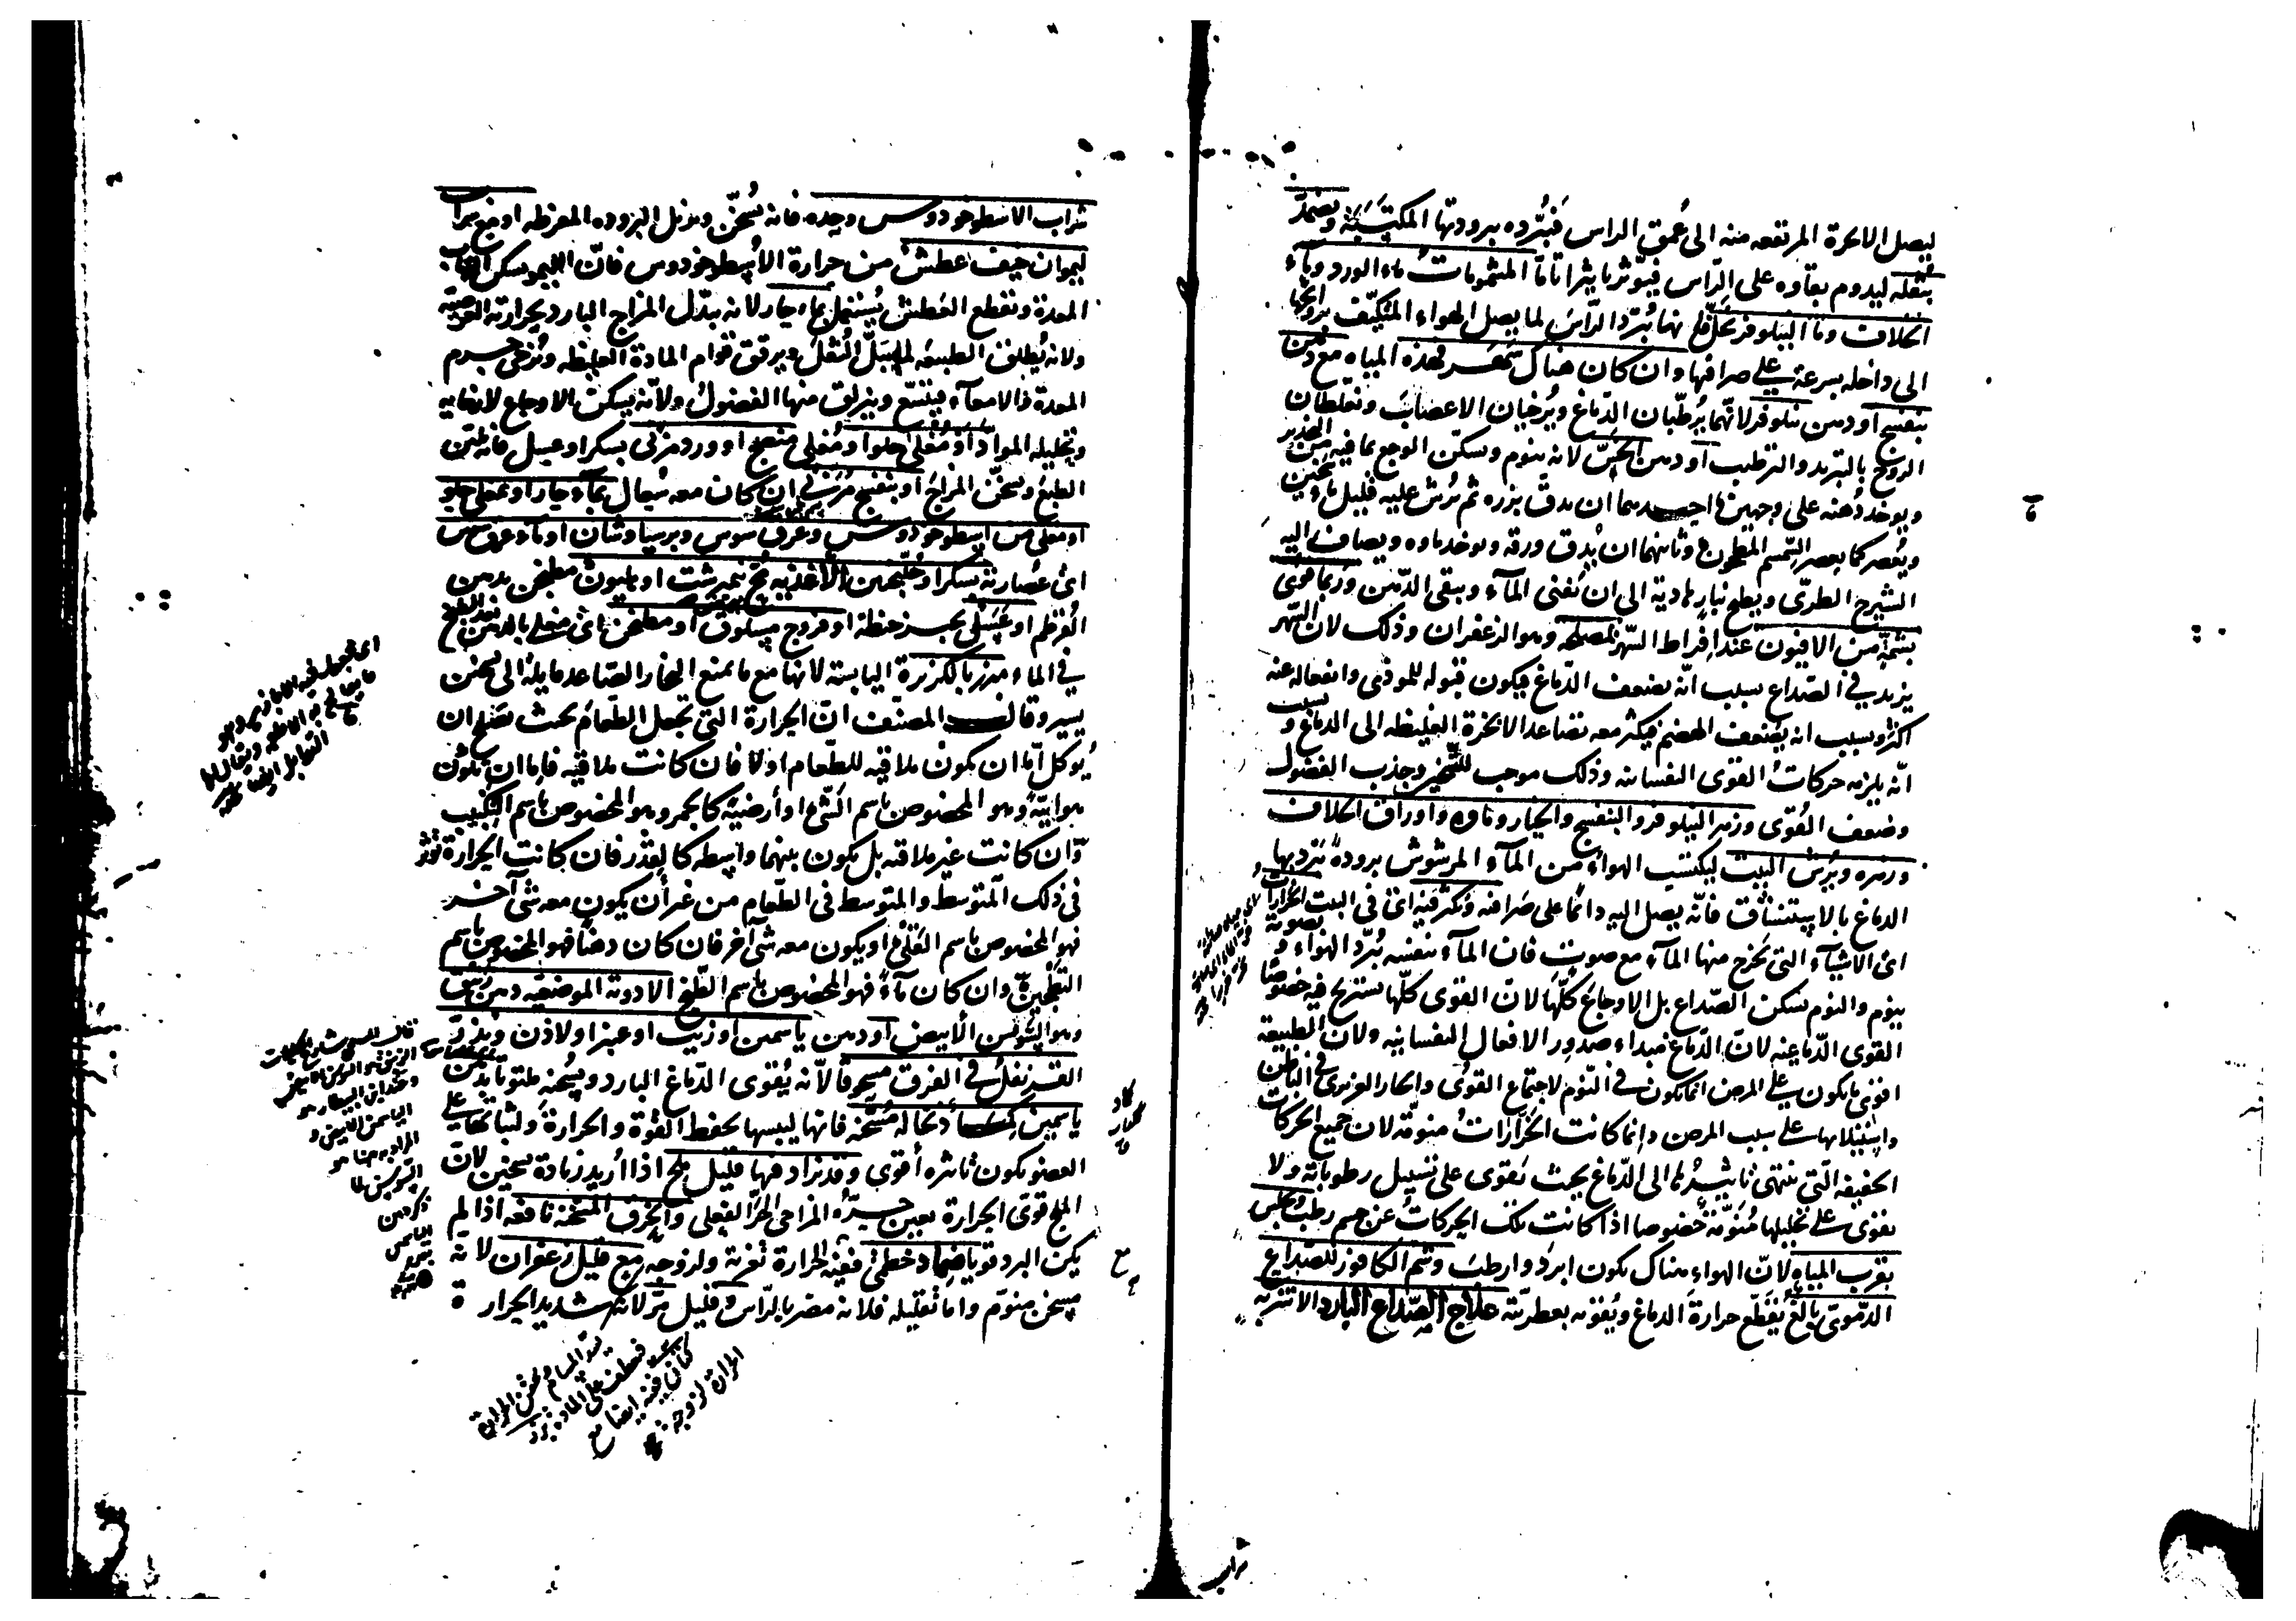 ليصل الابخرة المرتفعه منه الى عمق الراس فتبرده ببرودتها المكتسبة ويضمد
بثفله ليدوم بقاوه على الراس فيوثر تاثيرا تاما المشمومات ماء الورد وماء
الخلاف وماء النيلوفر بخل فانها تبرد الراس لما يصل الهواء المتكيف بروائحها
الى داخله بسرعة على صرافتها وان كان هناك سهر فهذه المياه مع دهن
بنفسج او دهن نيلوفر لانهما يرطبان الدماغ ويرخيان الاعصاب ويغلظان
الروح بالتبريد والترطيب او دهن الخس لانه ينوم ويسكن الوجع بما فيه من التخدير
ويوخذ دهنه على وجهين احدهما ان يدق بزره ثم يرش عليه قليل ماء سخين
ويعصر كما يعصر السمسم المطحون وثانيهما ان يدق ورقه ويوخذ ماوه ويضاف اليه
الشيرج الطري ويطبخ بنار هادية الى ان يفنى الماء ويبقى الدهن وربما قوى
بشمة من الافيون عند افراط السهر لمصلحه وهو الزعفران وذلك لان السهر
يزيد في الصداع بسبب انه يضعف الدماغ فيكون قبوله للموذي وانفعاله عنه
اكثر وبسبب انه يضعف الهضم فيكثر معه تصاعد الابخرة الغليظه الى الدماغ و بسبب
انه يلزمه حركات القوى النفسانيه وذلك موجب للتسخين وجذب الفضول
وضعف القوى وزهر النيلوفر والبنفسج والخيار وماوه واوراق الخلاف
وزهره ويرش البيت ليكتسب الهواء من الماء المرشوش برودة تبرد بها
الدماغ بالاستنشاق فانه يصل اليه دائما على صرافته وتكثر فيه اي في البيت الخرارات
اي الاشياء التي يخرج منها الماء مع صوت فان الماء بنفسه يبرد الهواء و بصوته
ينوم والنوم يسكن الصداع بل الاوجاع كلها لان القوى كلها تستريح فيه خصوصا
القوى الدماغيه لان الدماغ مبداء صدور الافعال النفسانيه ولان الطبيعة
اقوى ما يكون على المرض انما يكون في النوم لاجتماع القوى والحار الغريزي في الباطن
واستيلائها على سبب المرض وانما كانت الخرارات منومة لان جميع الحركات
الخفيفه التي ينتهي تاثيرها الى الدماغ بحيث يقوى على تسييل رطوباته ولا
يقوى على تحليلها منومة خصوصا اذا كانت تلك الحركات عن جسم رطب ويجلس
بقرب المياه لان الهواء هناك يكون ابرد وارطب وشم الكافور للصداع
الدموي بالغ يقطع حرارة الدماغ ويقويه بعطريته علاج الصداع البارد الاشربه
شراب
شراب الاسطوخودوس وحده فانه يسخن ويزيل البرودة المفرطه او مع شراب
ليمو ان خيف عطش من حرارة الاسطوخودوس فان الليمو يسكن التهاب
المعدة ويقطع العطش يستعمل بماء حار لانه يبدل المزاج البارد بحرارته العرضية
ولانه يطلق الطبيعه لما يبل الثفل ويرقق قوام المادة الغليظه ويرخي جرم
المعدة والامعاء فيتسع وينزلق منها الفضول ولانه يسكن الاوجاع لارخائيه
وتحليله المواد او مغلي حلوا او مغلي منضج او ورد مربى بسكر او عسل فانه يلين
الطبع ويسخن المزاج او بنفسج مربى ان كان معه سعال بماء حار او بمغلي حلو
او مغلي من اسطوخودوس وعرق سوس وبرسياوشان او ماء عرق سوس
اي عصارته بسكر او جلنجبين الاغذية مخ نيمبرشت او هليون مطجن بدهن
القرطم او عسل بخبز حنطة او فروج مسلوق او مطجن اي مغلي بالدهن بعد الطبخ
في الماء مبزر بالكزبرة اليابسة لانها مع ما يمنع البخار الصاعد مايله الى سخن
يسير وقال المصنف ان الحرارة التي تجعل الطعام بحيث يصلح ان
يوكل اما ان يكون ملاقيه للطعام اولا فان كانت ملاقيه فاما ان يكون
هوائية وهو المخصوص باسم الشي او أرضية كالجمر وهو المخصوص باسم التكبيب
وان كانت غير ملاقيه بل يكون بينهما واسطه كالقدر فان كانت الحرارة توثر
في ذلك المتوسط والمتوسط في الطعام من غير أن يكون معه شئ آخر
فهو المخصوص باسم القلي او يكون معه شئ آخر فان كان دهنا فهو المخصوص باسم
التطجين وان كان ماء فهو المخصوص باسم الطبخ الادوية الموضعيه دهن زنبق
وهو السوسن الأبيض او دهن ياسمين او زيت او عنبر او لاذن ويذر
القرنفل في الفرق مسحوقا لانه يقوى الدماغ البارد ويسخنه ملتوتا بدهن
ياسمين كمادا نخاله مسخنه فانها ليبسها يحفظ القوة والحرارة ولثباتها على
العضو يكون تاثيره أقوى وقد يزاد فيها قليل ملح اذا أريد زيادة تسخين لان
الملح قوى الحرارة يعين حره المزاجي الحر الفعلي والخرق المسخنه نافعه اذا لم
يكن البرد قويا ضماد خطمي ففيه الحرارة تغرية ولزوجه مع قليل زعفران لانه
مسخن منوم واما تقليله فلانه مضر بالراس وقليل مر لانه شديد الحرارة